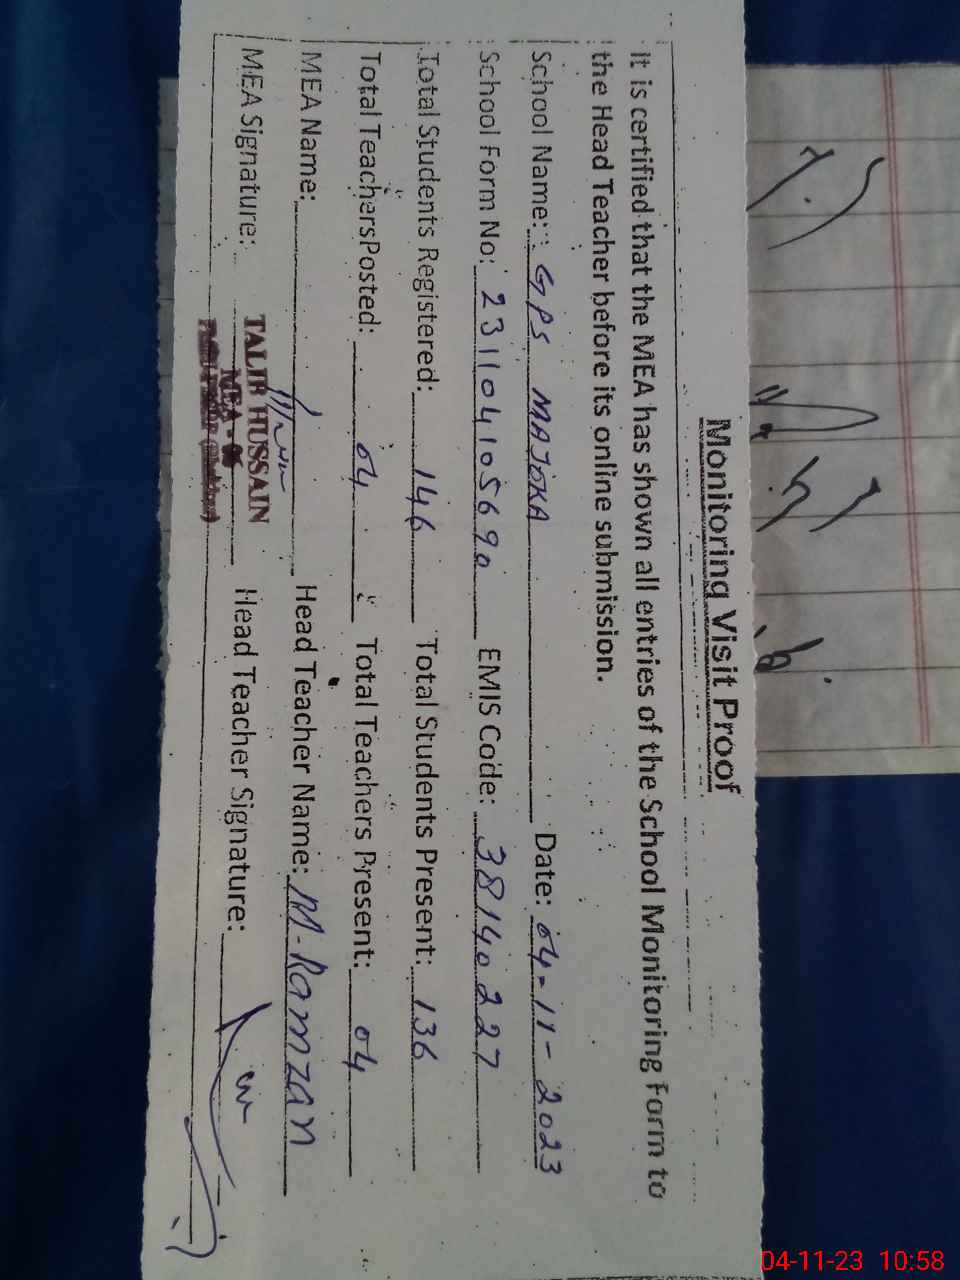 Monitoring Visit Proof
It is certified that the MEA has shown all entries of the School Monitoring Form to
the Head Teacher before its online submission.
School Name: GPS MAJOKA Date: 04-11-2023
School Form No: 231104105690 EMIS Code: 38140227
Total Students Registered: 146 Total Students Present: 136
Total Teachers Posted: 04 Total Teachers Present: 04
MEA Name: Head Teacher Name: M. Ramzan
MEA Signature: Head Teacher Signature:
TALIB HUSSAIN
MEA - 06
04-11-23 10:58